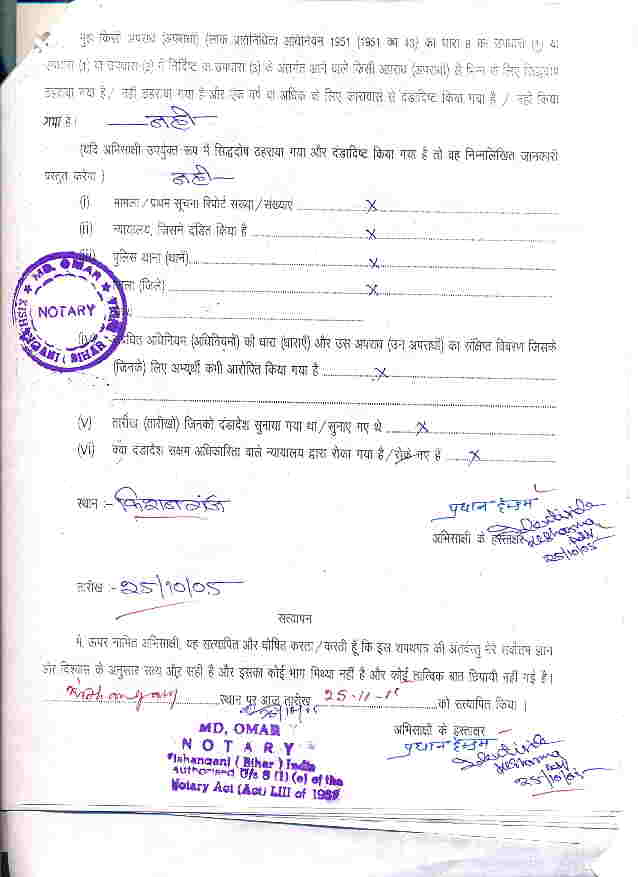 मुझे किसी अपराध (अपराधों) (लोक प्रतिनिधित्व) अधिनियम 1951 (1951 का 43) की धारा 8 की उपधारा (1) या
उपधारा (1) या उपधारा (2) में निर्दिष्ट या उपधारा (3) के अंतर्गत आने वाले किसी अपराध (अपराधों) से भिन्न के लिए सिद्धदोष
ठहराया गया है / नहीं ठहराया गया है और एक वर्ष या अधिक के लिए कारावास से दंडादिष्ट किया गया है / नहीं किया
गया है। नहीं
(यदि अभिसाक्षी उपर्युक्त रूप में सिद्धदोष ठहराया गया और दंडादिष्ट किया गया है तो वह निम्नलिखित जानकारी
प्रस्तुत करेगा) नहीं
(i) मामला/प्रथम सूचना रिपोर्ट संख्या/संख्याएं x
(ii) न्यायालय, जिसने दंडित किया है x
पुलिस थाना (थानें) x
(जिले) x
MD. OMAR
NOTARY
KISHANGANJ (BIHAR)
अधिनियम (अधिनियमों) की धारा (धाराएँ) और उस अपराध (उन अपराधों) का संक्षिप्त विवरण जिसके
(जिनके) लिए अभ्यर्थी कभी आरोपित किया गया है x
(V) तारीख (तारीखों) जिनको दंडादेश सुनाया गया था/सुनाए गए थे x
(Vi) क्या दंडादेश सक्षम अधिकारिता वाले न्यायालय द्वारा रोका गया है/रोके गए हैं x
स्थान :- किशनगंज
प्रधान हेम्ब्रम
अभिसाक्षी के हस्ताक्षर
25/10/05
तारीख :- 25/10/05
सत्यापन
मैं, ऊपर नामित अभिसाक्षी, यह सत्यापित और घोषित करता/करती हूँ कि इस शपथपत्र की अंतर्वस्तु मेरे सर्वोत्तम ज्ञान
और विश्वास के अनुसार सत्य और सही है और इसका कोई भाग मिथ्या नहीं है और कोई तात्विक बात छिपायी नहीं गई है।
स्थान पर आज तारीख को सत्यापित किया।
अभिसाक्षी के हस्ताक्षर
प्रधान हेम्ब्रम
25/10/05
MD, OMAR
NOTARY
Kishanganj (Bihar) India
Authorised U/s 8 (1) (e) of the
Notary Act (Act) LIII of